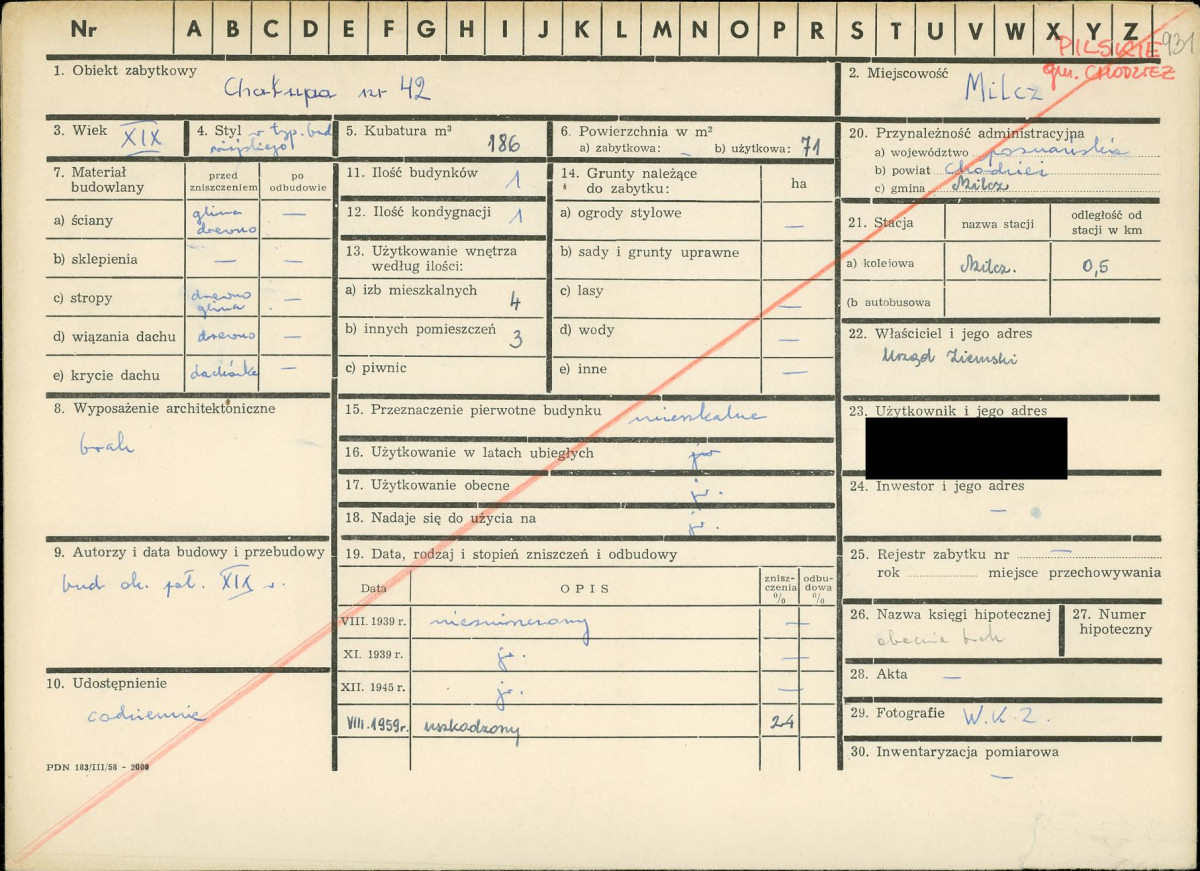 Nr A B C D E F G H I J K L M N O P R S T U V W X Y Z
931
PILSKIE
gm. CHODZIEŻ
1. Obiekt zabytkowy
Chałupa nr 42
2. Miejscowość
Milcz
3. Wiek XIX
4. Styl w typ. bud
wiejskiego
5. Kubatura m³
186
6. Powierzchnia w m²
a) zabytkowa: – b) użytkowa: 71
20. Przynależność administracyjna
a) województwo poznańskie
b) powiat Chodzież
c) gmina Milcz
7. Materiał budowlany
przed zniszczeniem
po odbudowie
a) ściany glina drewno –
b) sklepienia – –
c) stropy drewno glina –
d) wiązania dachu drewno –
e) krycie dachu dachówka –
11. Ilość budynków 1
12. Ilość kondygnacji 1
13. Użytkowanie wnętrza
według ilości:
a) izb mieszkalnych 4
b) innych pomieszczeń 3
c) piwnic
14. Grunty należące
do zabytku:
ha
a) ogrody stylowe –
b) sady i grunty uprawne
c) lasy –
d) wody –
e) inne –
21. Stacja
nazwa stacji
odległość od
stacji w km
a) kolejowa Milcz. 0,5
(b autobusowa
22. Właściciel i jego adres
Urząd Ziemski
8. Wyposażenie architektoniczne
brak
15. Przeznaczenie pierwotne budynku mieszkalne
16. Użytkowanie w latach ubiegłych jw
17. Użytkowanie obecne jw.
18. Nadaje się do użycia na jw.
23. Użytkownik i jego adres
24. Inwestor i jego adres
–
9. Autorzy i data budowy i przebudowy
bud ok. poł. XIX w.
19. Data, rodzaj i stopień zniszczeń i odbudowy
Data
OPIS
znisz-
czenia
%
odbu-
dowa
%
VIII. 1939 r. niezniszczony –
XI. 1939 r. jw. –
XII. 1945 r. jw. –
VIII. 1959r. uszkodzony 24
25. Rejestr zabytku nr –
rok miejsce przechowywania
26. Nazwa księgi hipotecznej
obecnie brak
27. Numer
hipoteczny
28. Akta –
29. Fotografie W.K.Z.
30. Inwentaryzacja pomiarowa
–
10. Udostępnienie
codziennie
PDN 183/III/58 – 2000